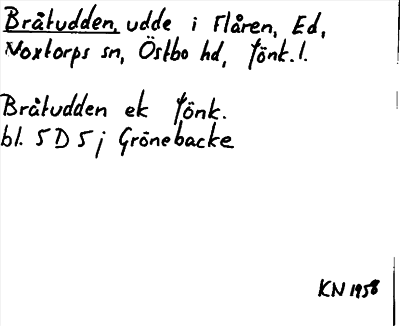 Bråtudden, udde i Flåren, Ed,
Voxtorps sn, Östbo hd, Jönk.l.
Bråtudden ek Jönk.
bl. 5D5j Grönebacke
KN 1958